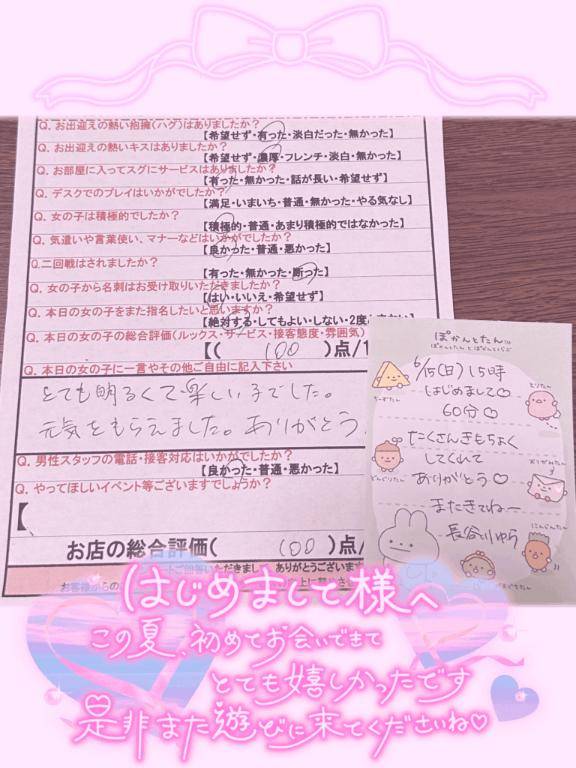 Q. お出迎えの熱い抱擁(ハグ)はありましたか？
【希望せず・有った・淡白だった・無かった】
Q. お出迎えの熱いキスはありましたか？
【希望せず・濃厚・フレンチ・淡白・無かった】
Q. お部屋に入ってスグにサービスはありましたか？
【有った・無かった・話が長い・希望せず】
Q. デスクでのプレイはいかがでしたか？
【満足・いまいち・普通・無かった・やる気なし】
Q. 女の子は積極的でしたか？
【積極的・普通・あまり積極的ではなかった】
Q. 気遣いや言葉使い、マナーなどはいかがでしたか？
【良かった・普通・悪かった】
Q. 二回戦はされましたか？
【有った・無かった・断った】
Q. 女の子から名刺はお受け取りいただきましたか？
【はい・いいえ・希望せず】
Q. 本日の女の子をまた指名したいと思いますか？
【絶対する・してもよい・しない・2度と
Q. 本日の女の子の総合評価(ルックス・サービス・接客態度・雰囲気)
【( 100 )点/1
Q. 本日の女の子に一言やその他ご自由に記入下さい
とても明るくて楽しい子でした。
元気をもらえました。ありがとう
Q. 男性スタッフの電話・接客対応はいかがでしたか？
【良かった・普通・悪かった】
Q. やってほしいイベント等ございますでしょうか？
【
お店の総合評価( 100 )点/
ありがとうございます
お客様からの
ぽかんとたん
6/15(日)15時
はじめまして♡
60分♡
たくさんきもちよく
してくれて
ありがとう♡
またきてねー
長谷川ゆら
ちーずたん
とりたん
どんぐりたん
おてがみたん
にんじんたん
はじめまして様へ
この夏、初めてお会いできて
とても嬉しかったです
是非また遊びに来てくださいね♡